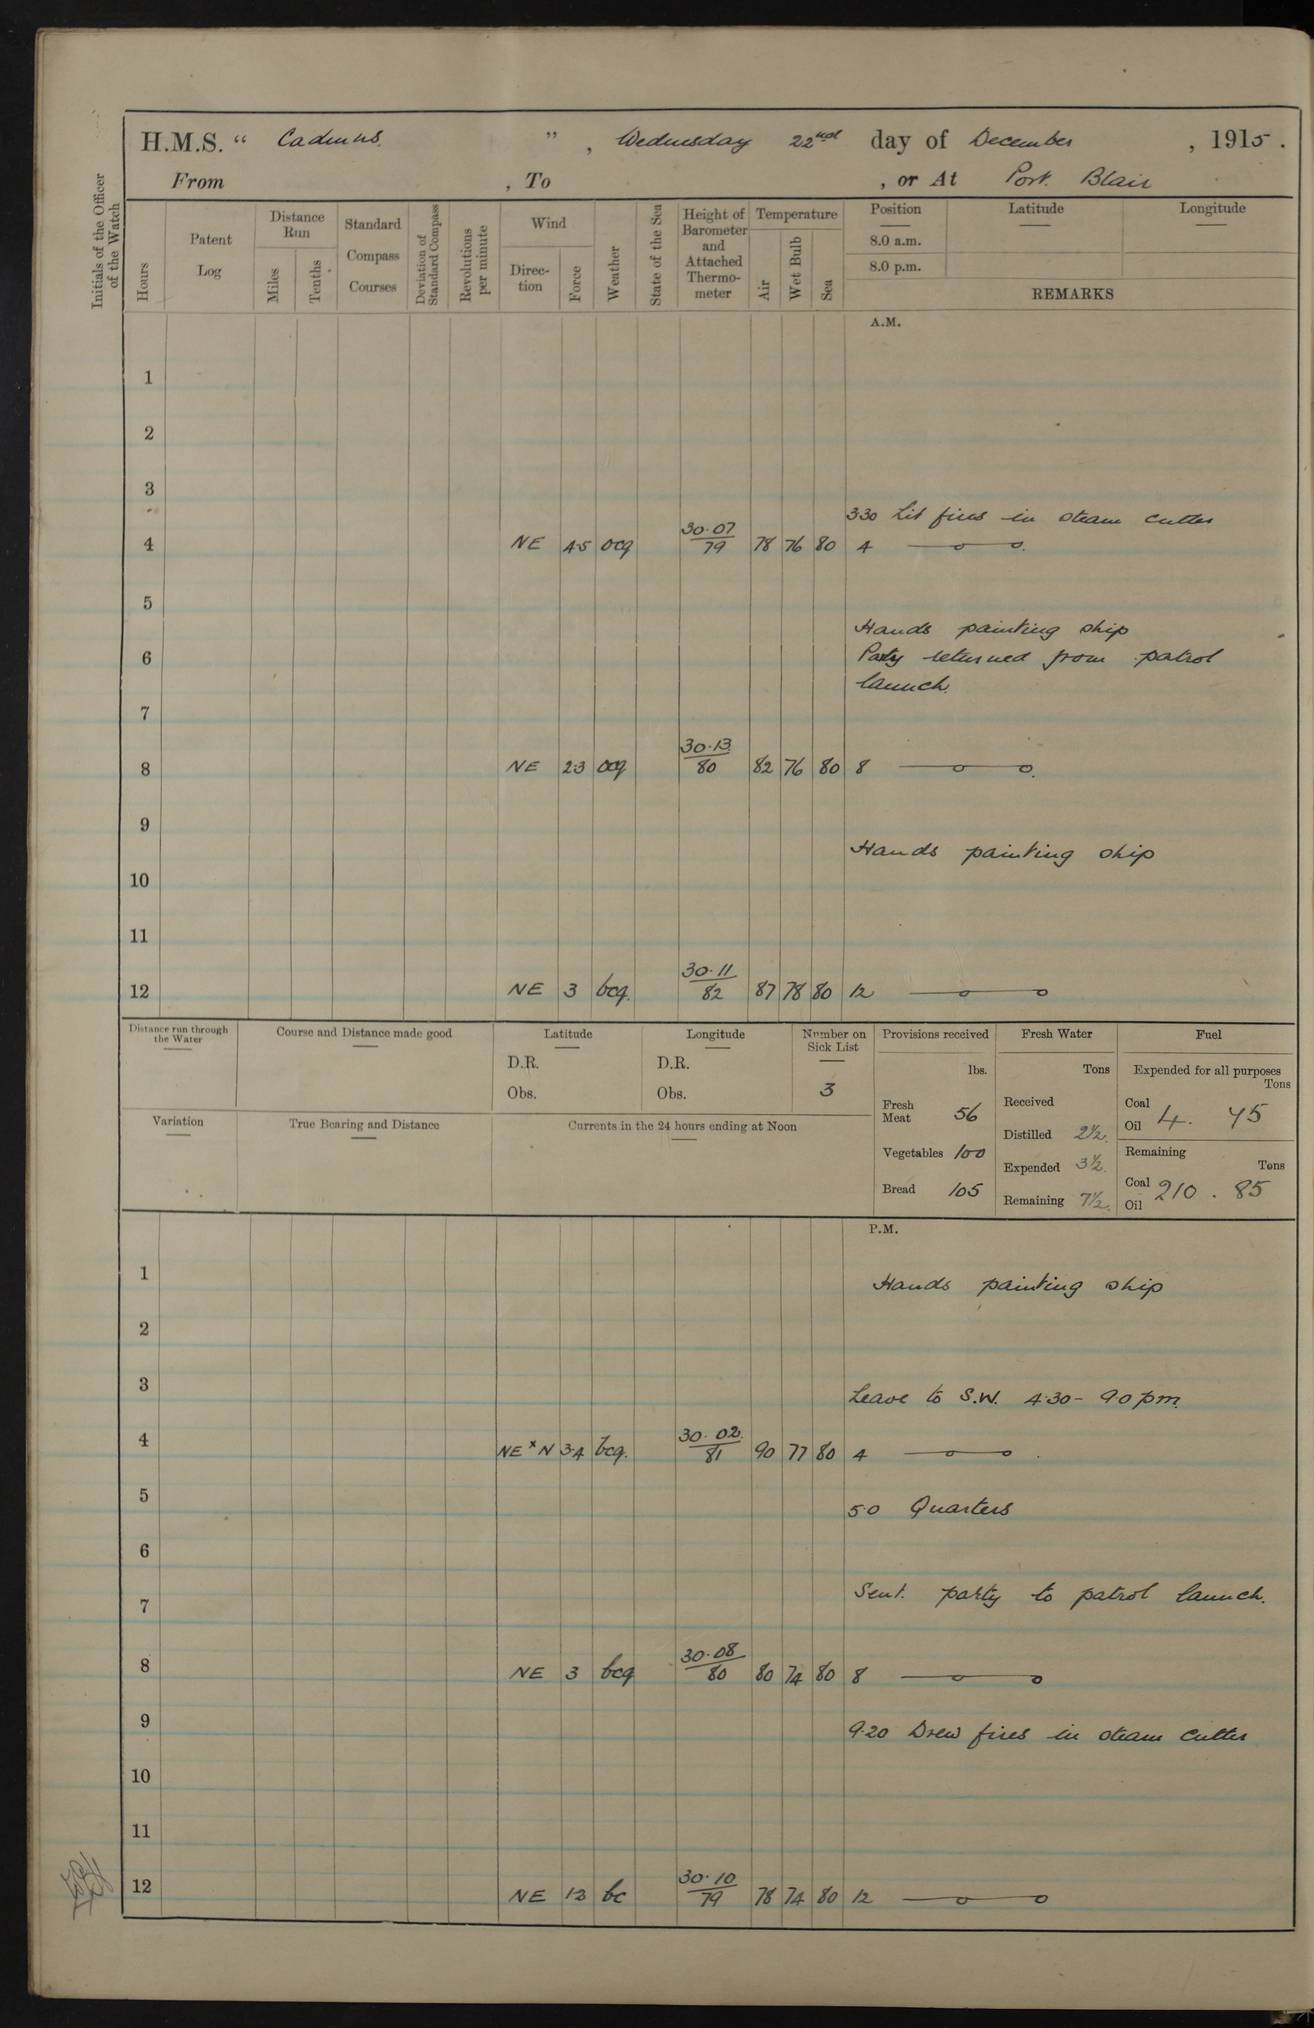 H.M.S. " Cadmus. ", Wednesday 22nd day of December, 1915.
From , To , or At Port Blair
Initials of the Officer of the Watch
Hours
Patent Log
Distance Run
Miles
Tenths
Standard Compass Courses
Deviation of Standard Compass
Revolutions per minute
Wind
Direction
Force
Weather
State of the Sea
Height of Barometer and Attached Thermometer
Temperature
Air
Wet Bulb
Sea
Position
Latitude
Longitude
8.0 a.m.
8.0 p.m.
REMARKS
A.M.
1
2
3
3 30 Lit fires in steam cutter
4 NE 4·5 ocq 30·07/79 78 76 80 4
5
Hands painting ship
6 Party returned from patrol
launch.
7
8 NE 2·3 ocq 30·13/80 82 76 80 8
9
Hands painting ship
10
11
12 NE 3 bcq. 30·11/82 87 78 80 12
Distance run through the Water
Course and Distance made good
Latitude
Longitude
Number on Sick List
Provisions received
Fresh Water
Fuel
D.R. D.R.
lbs. Tons Expended for all purposes Tons
Obs. Obs. 3
Fresh Meat 56 Received Coal Oil 4. 45
Variation
True Bearing and Distance
Currents in the 24 hours ending at Noon
Distilled 2½.
Vegetables 100 Expended 3½. Remaining Tons
Bread 105 Remaining 7½. Coal Oil 210. 85
P.M.
1 Hands painting ship
2
3 Leave to S.W. 4·30 - 9·0 pm.
4 NE x N 3·4 bcq. 30·02/81 90 77 80 4
5 5·0 Quarters
6
Sent. party to patrol launch.
7
8 NE 3 bcq 30·08/80 80 74 80 8
9 9·20 Drew fires in steam cutter
10
11
12 NE 12 bc 30·10/79 78 74 80 12